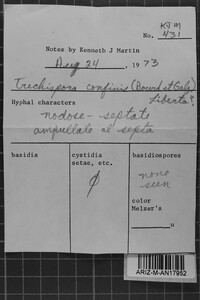 KJM
No. 431
Notes by Kenneth J Martin
Aug 24, 1973
Trechispora confinis (Bourd et Galz)
Liberta?
Hyphal characters
nodose-septate
ampullate at septa
basidia
cystidia
setae, etc.
basidiospores
none
seen
color
Melzer's
u
ARIZ-M-AN17952